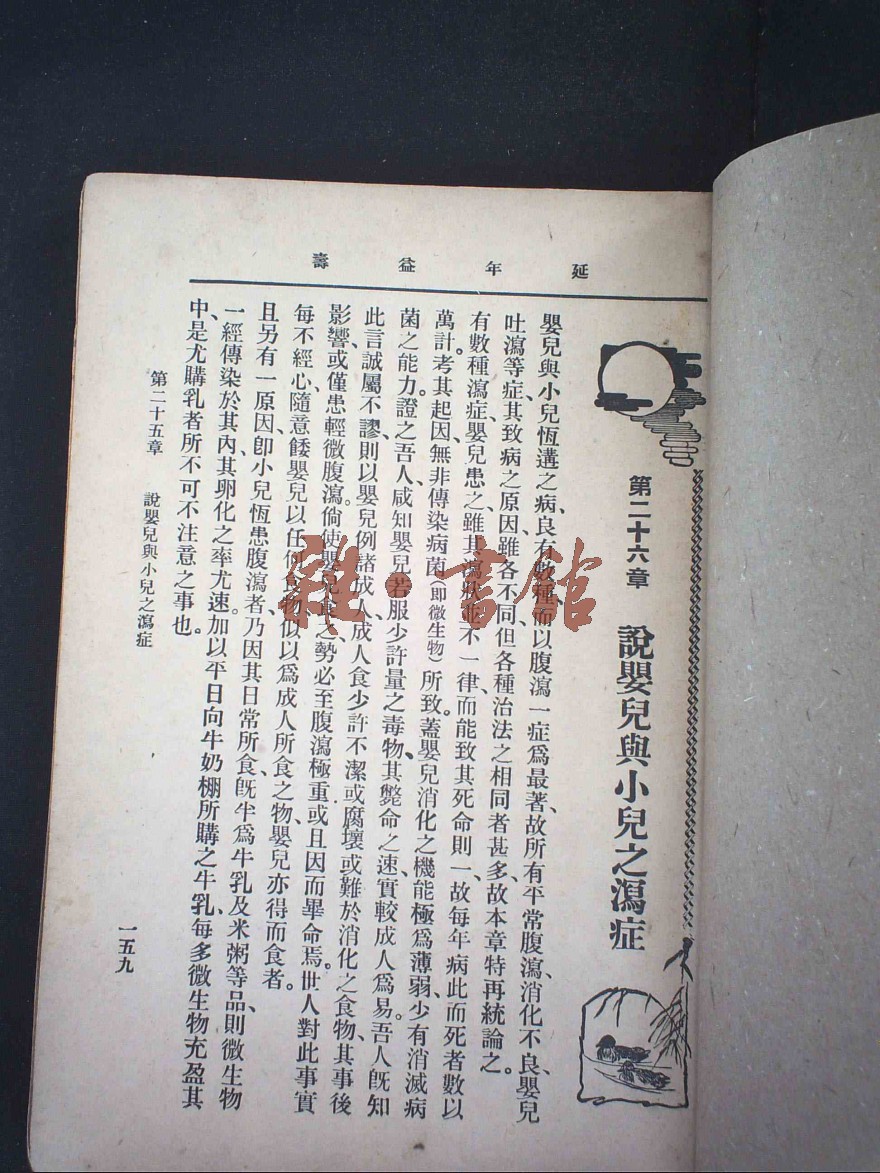 延年益壽
第二十六章 說嬰兒與小兒之瀉症
嬰兒與小兒恆遘之病、良有數種、而以腹瀉一症爲最著、故所有平常腹瀉、消化不良、嬰兒
吐瀉等症、其致病之原因雖各不同、但各種治法之相同者甚多、故本章特再統論之。
有數種瀉症、嬰兒患之、雖其瀉狀並不一律、而能致其死命則一、故每年病此而死者數以
萬計。考其起因、無非傳染病菌(即微生物)所致、蓋嬰兒消化之機能極爲薄弱、少有消滅病
菌之能力、證之吾人咸知嬰兒若服少許量之毒物、其斃命之速、實較成人爲易。吾人旣知
此言誠屬不謬、則以嬰兒例諸成人、成人食少許不潔或腐壞或難於消化之食物、其事後
影響、或僅患輕微腹瀉。倘使嬰兒食之、勢必至腹瀉極重、或且因而畢命焉。世人對此事實
每不經心、隨意餧嬰兒以任何食物、似以爲成人所食之物、嬰兒亦得而食者。
且另有一原因、卽小兒恆患腹瀉者、乃因其日常所食、旣半爲牛乳及米粥等品、則微生物
一經傳染於其內、其孵化之率尤速。加以平日向牛奶棚所購之牛乳、每多微生物充盈其
中、是尤購乳者所不可不注意之事也。
第二十五章 說嬰兒與小兒之瀉症
一五九
雜·書館